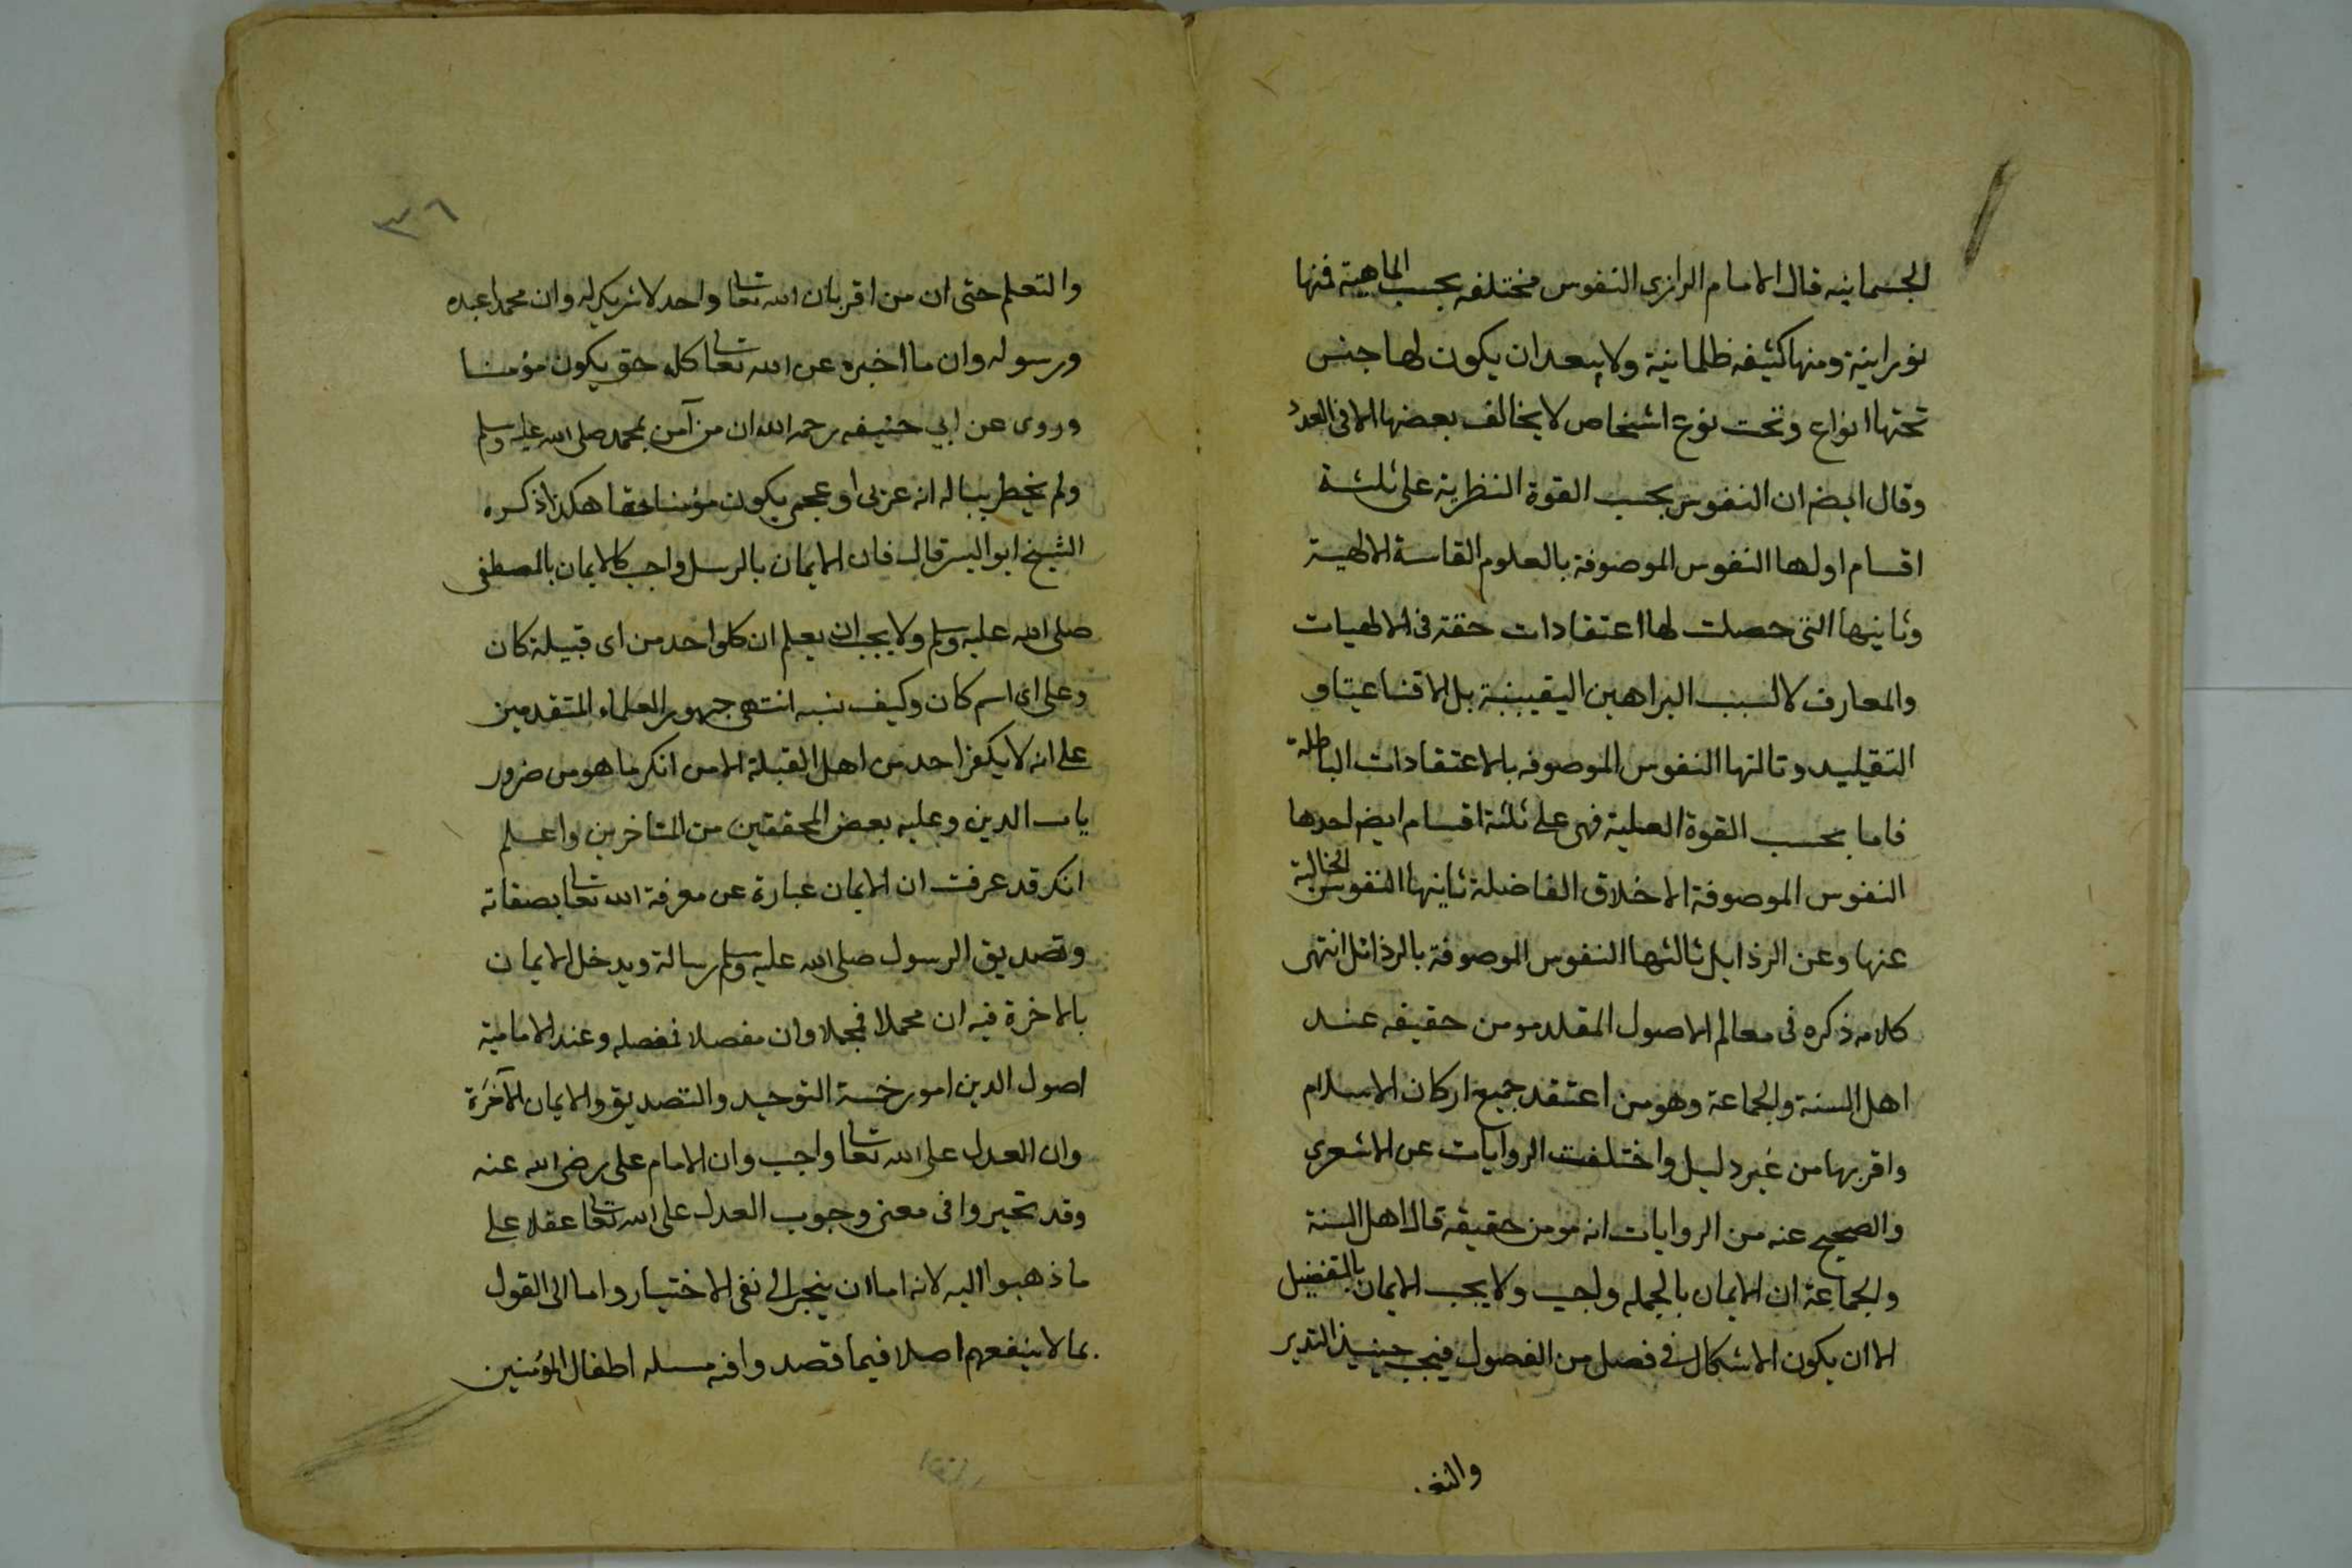 الجسمانيه قال الامام الرازى النفوس مختلفه بحسب الماهية فمنها
نورانية ومنها كثيفه ظلمانية ولا يبعد ان يكون لها جنس
تحتها انواع وتحت نوع اشخاص لا يخالف بعضها الا فى العدد
وقال ايضه ان النفوس بحسب القوة النظرية على ثلثة
اقسام اولها النفوس الموصوفة بالعلوم القاسة الالهية
وثانيها التى حصلت لها اعتقادات حقة فى الالهيات
والمعارف لا لسبب البراهين اليقينية بل الاقناعيتاو
التقيليد وتالتها النفوس الموصوفه بالاعتقادات الباطلة
فاما بحسب القوة العملية فهى على ثلثة اقسام ايضه احدها
النفوس الموصوفة الاخلاق الفاضلة ثانيها النفوس الخالية
عنها وعن الرذايل ثالثها النفوس الموصوفة بالرذائل انتهى
كلامه ذكره فى معالم الاصول المقلد مومن حقيقه عند
اهل السنة والجماعة وهو من اعتقد جميع اركان الاسلام
واقر بها من غير دليل واختلفت الروايات عن الاشعرى
والصحيح عنه من الروايات انه مومن حقيقة قال اهل السنة
والجماعة ان الايمان بالجمله واجب ولا يجب الايمان بالتفضيل
الا ان يكون الاشكال فى فصل من الفصول فيجب حينيذ التدبر
والتع
٣٦
والتعلم حتى ان من اقر بان الله تعالى واحد لا شريك له وان محمدا عبده
ورسوله وان ما اخبره عن الله تعالى كله حق يكون مؤمنا
وروى عن ابي حنيفه رحمه الله ان من آمن بمحمد صلى الله عليه وسلم
ولم يخطر بباله انه عربى او عجمى يكون مؤمنا حقا هكذا ذكره
الشيخ ابو اليسر قال فان الايمان بالرسل واجب كالايمان بالمصطفى
صلى الله عليه وسلم ولا يجب ان يعلم ان كلواحد من اى قبيلة كان
وعلى اى اسم كان وكيف نسبه انتهى جمهور العلماء المتقدمين
على انه لا يكفر احد من اهل القبلة الا من انكر ما هو من ضرور
يات الدين وعليه بعض المحققين من المتاخرين واعلم
انك قد عرفت ان الايمان عبارة عن معرفة الله تعالى بصفاته
وتصديق الرسول صلى الله عليه وسلم رسالة ويدخل الايمان
بالاخرة فيه ان مجملا فمجملا وان مفصلا فمفصله وعند الامامية
اصول الدين امور خمسة التوحيد والتصديق والايمان الآخرة
وان العدل على الله تعالى واجب وان الامام على رضى الله عنه
وقد تحيروا فى معنى وجوب العدل على الله تعالى عقلا على
ما ذهبوا اليه لانه اما ان ينجر الى نفى الاختيار واما الى القول
بما لا ينفعهم اصلا فيما قصدوا فيه مسله اطفال المؤمنين